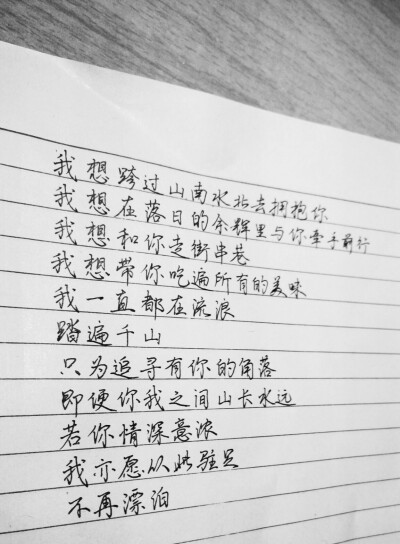 我想跨过山南水北去拥抱你
我想在落日的余辉里与你牵手前行
我想和你走街串巷
我想带你吃遍所有的美味
我一直都在流浪
踏遍千山
只为追寻有你的角落
即便你我之间山长水远
若你情深意浓
我亦愿从此驻足
不再漂泊